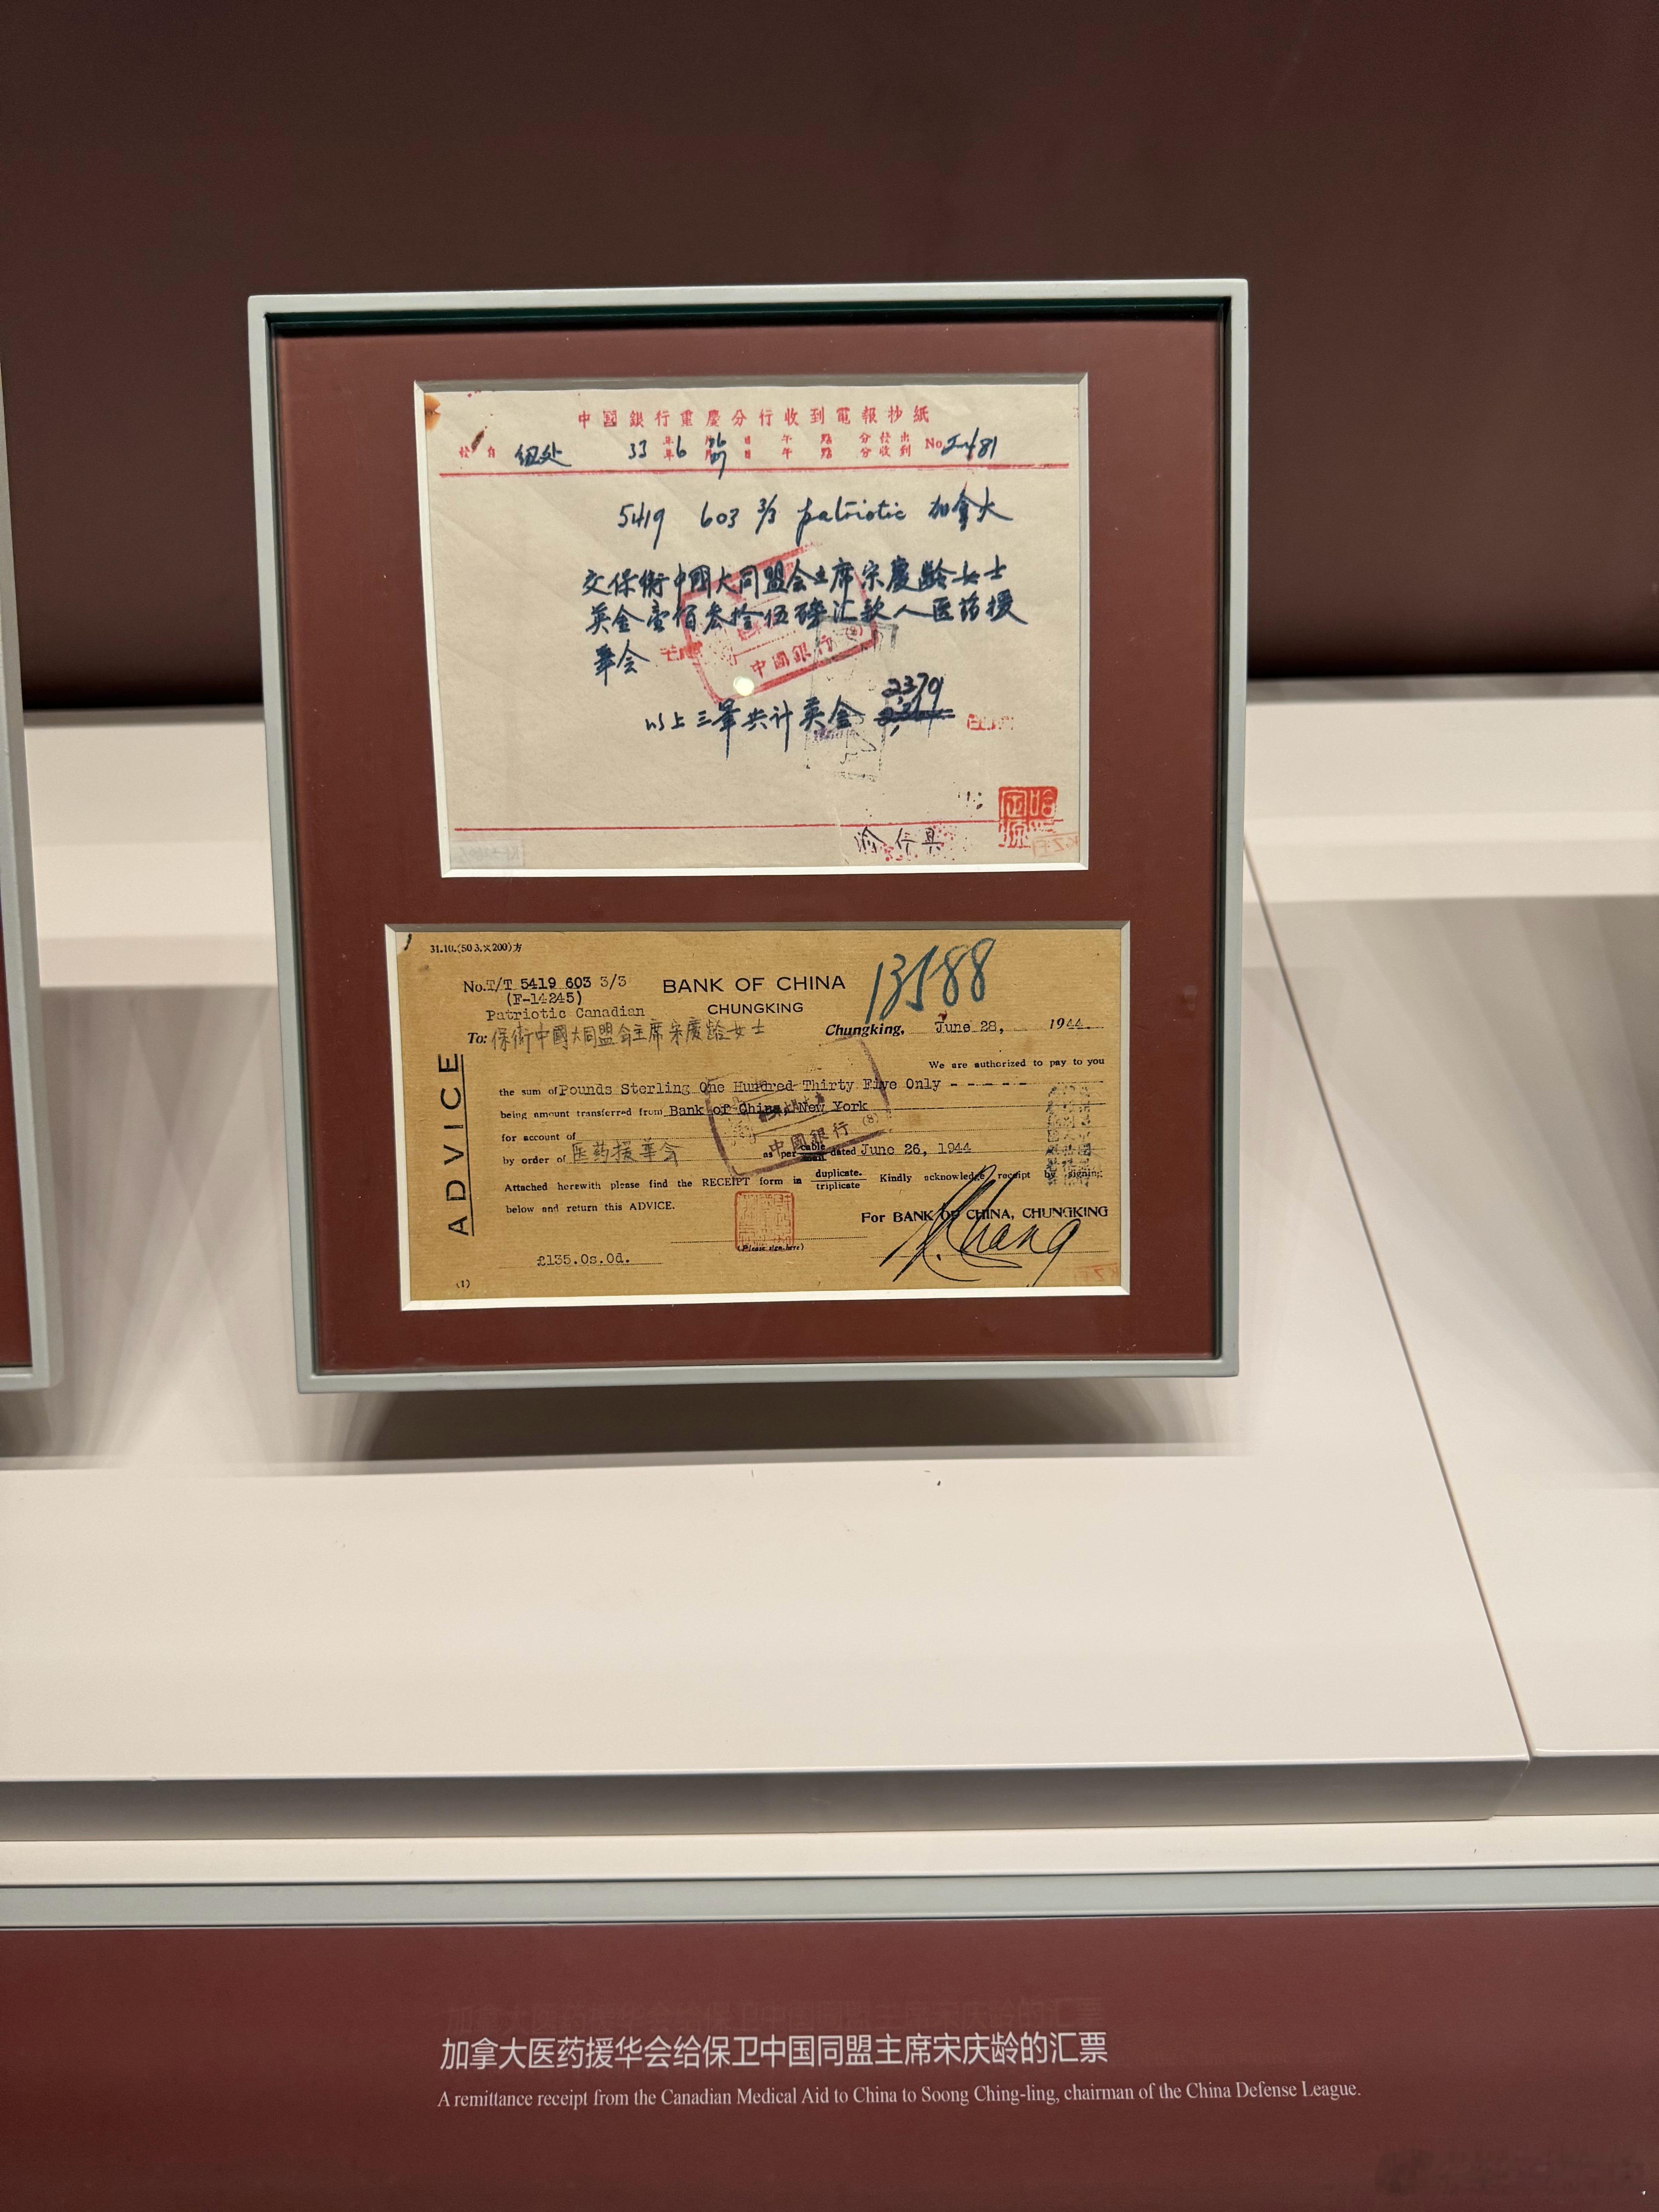 中國銀行重慶分行收到電報抄紙
發自 紐处 33年6月26日 午 點 分發出
年 月27日 午 點 分收到 No.
5419 603 3/3 patriotic 加拿大
交保衛中國大同盟会主席宋慶齡女士
英金壹佰叁拾伍磅汇款人医药援
華会
中國銀行
以上三筆共计英金 2370
渝行具
31.10.(503.X200)方
No.T/T 5419 603 3/3
(F-14245)
Patriotic Canadian
BANK OF CHINA
CHUNGKING
13588
To: 保衛中國大同盟会主席宋慶龄女士
Chungking, June 28, 1944.
ADVICE
We are authorized to pay to you
the sum of Pounds Sterling One Hundred Thirty Five Only - - - - - -
being amount transferred from Bank of China, New York
for account of
by order of 医药援華会 as per cable dated June 26, 1944
中國銀行 (8)
Attached herewith please find the RECEIPT form in duplicate. triplicate Kindly acknowledge receipt by signing
below and return this ADVICE.
For BANK OF CHINA, CHUNGKING
(Please sign here)
£135.0s.0d.
(1)
加拿大医药援华会给保卫中国同盟主席宋庆龄的汇票
A remittance receipt from the Canadian Medical Aid to China to Soong Ching-ling, chairman of the China Defense League.